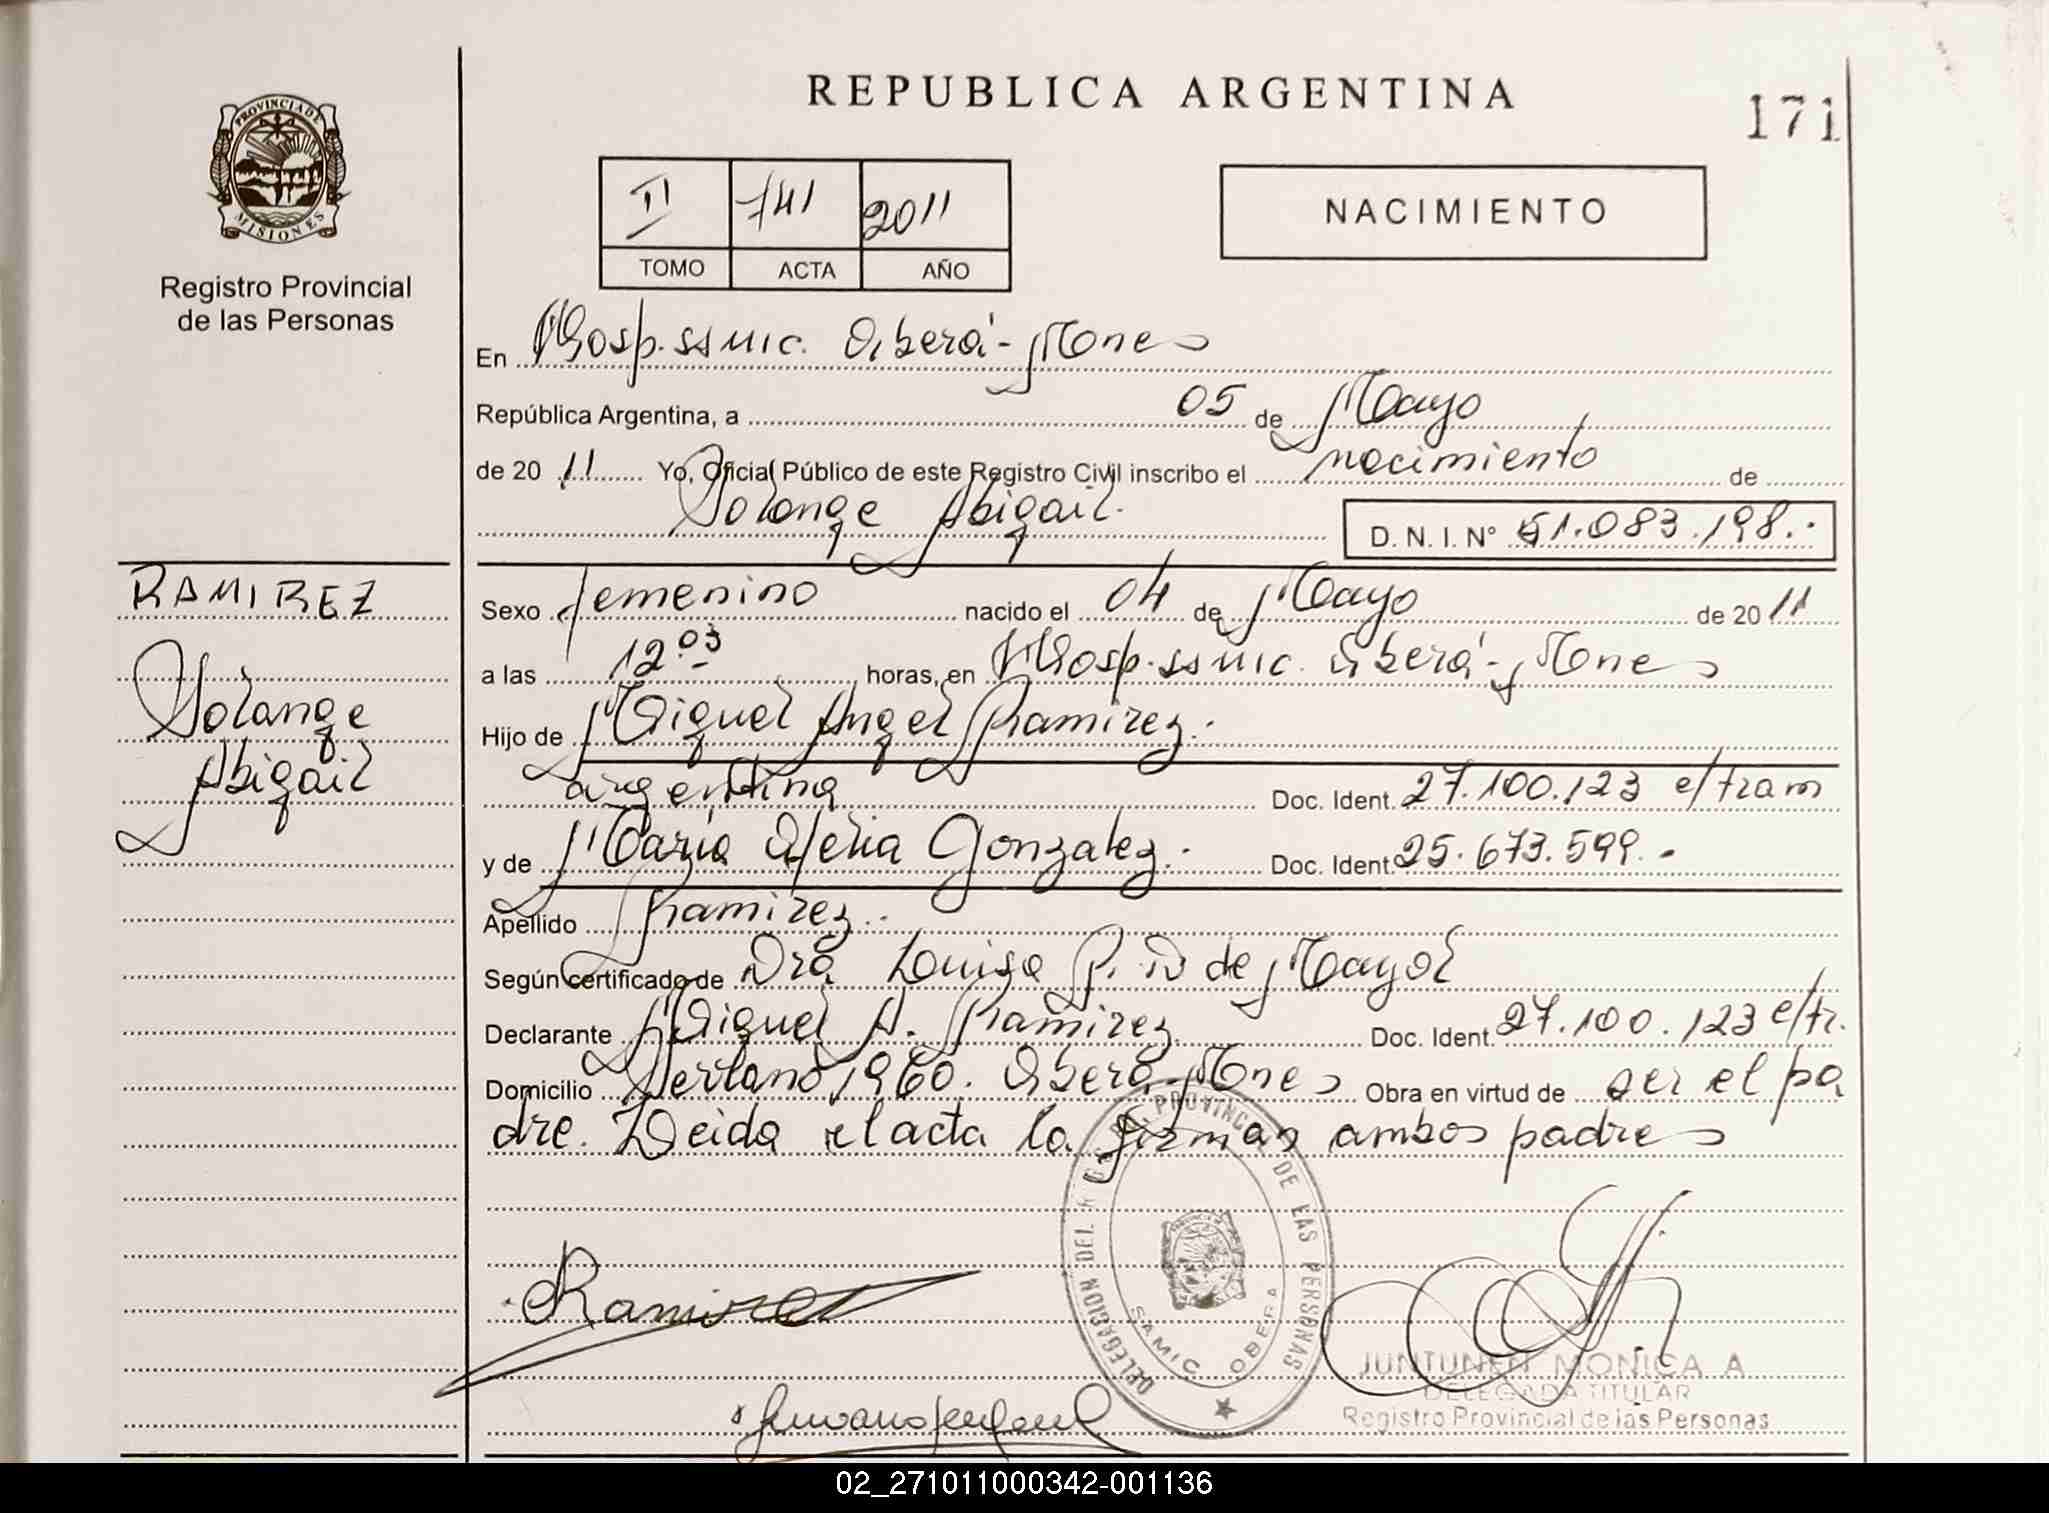 REPUBLICA ARGENTINA
171
PROVINCIA DE
MISIONES
Registro Provincial
de las Personas
II 741 2011
TOMO ACTA AÑO
NACIMIENTO
En Hosp. ssmic. Oberá - Mnes
República Argentina, a 05 de Mayo
de 20 11 Yo, Oficial Público de este Registro Civil inscribo el nacimiento de
Solange Abigail.
D. N. I. Nº 51.083.198.-
RAMIREZ
Solange
Abigail
Sexo femenino nacido el 04 de Mayo de 20 11
a las 12 03 horas, en Hosp. ssmic. Oberá - Mnes
Hijo de Miguel Angel Ramirez.
argentina Doc. Ident. 27.100.123 e/tram
y de María Gonzalez. Doc. Ident. 25.673.599.-
Apellido Ramirez.
Según certificado de Dra Louisa P. de Mayol
Declarante Miguel A. Ramirez Doc. Ident. 27.100.123 e/tr.
Domicilio 1960. Oberá - Mnes Obra en virtud de ser el pa
dre. Leida el acta la firman ambos padres
DELEGACION DEL REG. PROVINCIAL DE LAS PERSONAS
SAMIC OBERA
Ramirez
JUNTUNEN MONICA A
DELEGADA TITULAR
Registro Provincial de las Personas
02_271011000342-001136